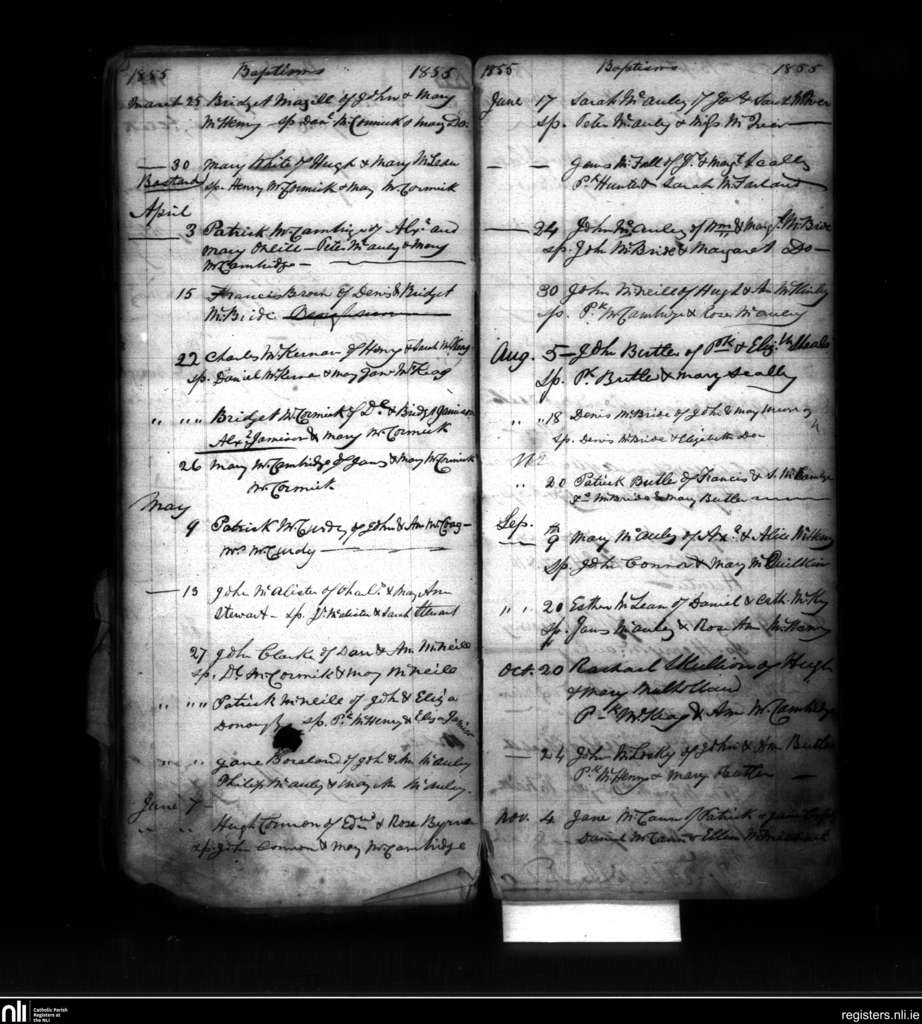 1855 Baptisms 1855
March 25 Bridget Magill of John & Mary
McHenry sp Danl McCormick & Mary Do.
— 30 Mary White of Hugh & Mary McLean
Bastard sp. Henry McCormick & May McCormick
April
3 Patrick McCambridge of Alxr and
Mary O'Neill — Peter McAuley & Mary
McCambridge —
15 Francis of Denis & Bridget
McBride
22 Charles McKernan of Henry & Sarah McKeag
sp. Daniel McKernan & May Jane McKeag
" "" Bridget McCormick of Dl & Bridgt Jamison
Alxr Jamison & Mary McCormick
26 Mary McCambridge of James & May McCormick
McCormick
May
9 Patrick McCurdy of John & Ann McCoag —
McCurdy —
— 13 John McAlister of Charls & May Ann
Stewart — sp. McAlister & Sarah Stewart
27 John Clarke of Dan & Ann McNeill
sp. Dl McCormick & May McNeill
" "" Patrick McNeile of Joh & Eliza
Donoughy sp. Pk McHenry & Eliza Jamison
" Jane Boreland of Joh & An McAuley
Philip McAuley & May An McAuley.
June 7 —
" " Hugh Connon of Edwd & Rose Byrne
sp. John Connon & May McCambridge
1855 Baptisms 1855
June 17 Sarah McAuley of Jas & Sarah
sp. Peter McAuley & Miss —
— — James McFall of Js & Magt Scally
Pk Hunter & Sarah McFarland
— 24 John McAuley of Wm & Margt McBride
sp. John McBride & Margaret Do —
30 John McNeill of Hugh & An
sp. Pk McCambridge & Rose McAuley
Aug. 5 — John Butler of Ptk & Elizth
sp. Pk. Butler & Mary Scally
" "18 Denis McBride of John & May Murray
sp. Denis McBride & Elizabeth Don
" 20 Patrick Butler of Francis & S. McCambridge
McBride & May Butler —
Sep. 9th Mary McAuley of Axr & Alice McHenry
sp. John Connor & Mary McQuilkin
" " 20 Esther McLean of Daniel & Cath. McKay
sp. James McAuley & Rose Ann McHenry
Oct. 20 Rachael of Hugh
& Mary Mulholland
P—k McKeag & Ann McCambridge
— 24 John of John & Ann Butler
Pk McHenry & Mary Butler —
Nov. 4 Jane McCann of Patrick & Jane
Daniel McCann & Ellen
nli Catholic Parish
Registers at
the NLI
registers.nli.ie